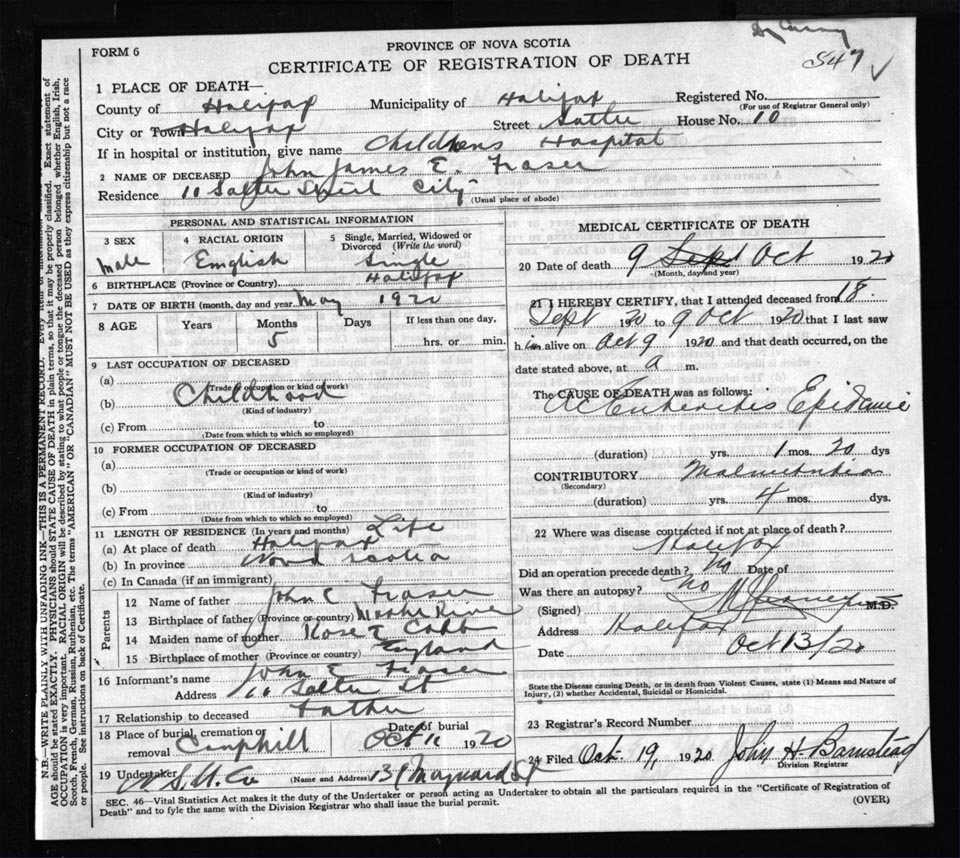 FORM 6
PROVINCE OF NOVA SCOTIA
CERTIFICATE OF REGISTRATION OF DEATH
847 ✓
1 PLACE OF DEATH—
County of Halifax Municipality of Halifax Registered No.
(For use of Registrar General only)
City or Town Halifax Street Salter House No. 10
If in hospital or institution, give name Childrens Hospital
2 NAME OF DECEASED John James E. Fraser
Residence 10 Salter Street City
(Usual place of abode)
PERSONAL AND STATISTICAL INFORMATION
3 SEX 4 RACIAL ORIGIN 5 Single, Married, Widowed or Divorced (Write the word)
Male English Single
6 BIRTHPLACE (Province or Country) Halifax
7 DATE OF BIRTH (month, day and year) May 1920
8 AGE Years Months Days If less than one day,
5 hrs. or min.
9 LAST OCCUPATION OF DECEASED
(a)
(Trade or occupation or kind of work)
(b) Childhood
(Kind of industry)
(c) From to
(Date from which to which so employed)
10 FORMER OCCUPATION OF DECEASED
(a)
(Trade or occupation or kind of work)
(b)
(Kind of industry)
(c) From to
(Date from which to which so employed)
11 LENGTH OF RESIDENCE (In years and months) Life
(a) At place of death Halifax
(b) In province Nova Scotia
(c) In Canada (if an immigrant)
Parents
12 Name of father John C Fraser
13 Birthplace of father (Province or country)
14 Maiden name of mother Rose
15 Birthplace of mother (Province or country) England
16 Informant's name John E Fraser
Address Salter St
17 Relationship to deceased Father
18 Place of burial, cremation or removal Camphill Date of burial Oct 11 1920
19 Undertaker N S U. Co (Name and Address) Maynard St
MEDICAL CERTIFICATE OF DEATH
20 Date of death 9 Sept Oct 1920
(Month, day and year)
21 I HEREBY CERTIFY, that I attended deceased from 18
Sept 1920 to 9 Oct 1920 that I last saw
him alive on Oct 9 1920 and that death occurred, on the
date stated above, at a m.
The CAUSE OF DEATH was as follows:
Ac Enteritis Epidemic
(duration) yrs. 1 mos. 20 dys
CONTRIBUTORY Malnutrition
(Secondary)
(duration) yrs. 4 mos. dys.
22 Where was disease contracted if not at place of death?
Halifax
Did an operation precede death? No Date of
Was there an autopsy? No
(Signed) M.D.
Address Halifax
Date Oct 13/20
State the Disease causing Death, or in death from Violent Causes, state (1) Means and Nature of
Injury, (2) whether Accidental, Suicidal or Homicidal.
23 Registrar's Record Number
24 Filed Oct. 19, 1920 John H. Barnstead
Division Registrar
SEC. 46—Vital Statistics Act makes it the duty of the Undertaker or person acting as Undertaker to obtain all the particulars required in the "Certificate of Registration of
Death" and to fyle the same with the Division Registrar who shall issue the burial permit.
(OVER)
N.B.—WRITE PLAINLY WITH UNFADING INK—THIS IS A PERMANENT RECORD. Every item of
AGE should be stated EXACTLY. PHYSICIANS should STATE CAUSE OF DEATH in plain terms, so that it may be properly classified. Exact statement of
OCCUPATION is very important. RACIAL ORIGIN will be described by stating to what people or tongue the deceased person belonged whether English, Irish,
Scotch, French, German, Russian, Ruthenian, etc. The terms "AMERICAN" OR "CANADIAN" MUST NOT BE USED as they express citizenship but not a race
or people. See instructions on back of Certificate.